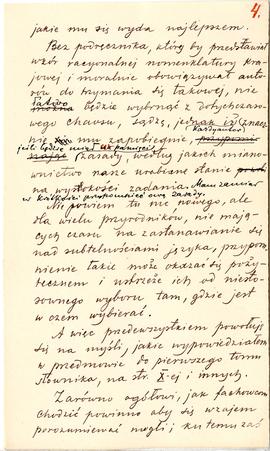 4.
jakie mu się wyda najlepszem.
Bez podręcznika, któryby przedstawiał
wzór racyonalnej nomenklatury kra-
jowej i moralnie obowiązywał auto-
rów do trzymania się takowej, nie
łatwo będzie wybrnąć z dotychczaso-
wego chaosu, sądzę, jednak iż znacz-
nie mu zapobiegnie,
jeśli będzie miał w pamięci
zasady, według jakich miano-
wnictwo nasze urobione stanie
na wysokości zadania. Mam zamiar
w krótkości przypomnieć owe zasady.
Nie powiem tu nic nowego, ale
dla wielu przyrodników, nie mają-
cych czasu na zastanawianie się
nad subtelnościami języka, przypo-
mnienie takie może okazać się poży-
tecznem i ustrzeże ich od niesto-
sownego wyboru tam, gdzie jest
w czem wybierać.
A więc przedewszystkiem powołuję
się na myśli, jakie wypowiedziałem
w przedmowie do pierwszego tomu
słownika, na str. X-ej i innych.
Zarówno ogółowi, jak fachowcom
chodzić powinno aby się wzajem
porozumiewać mogli i ku temu zaś